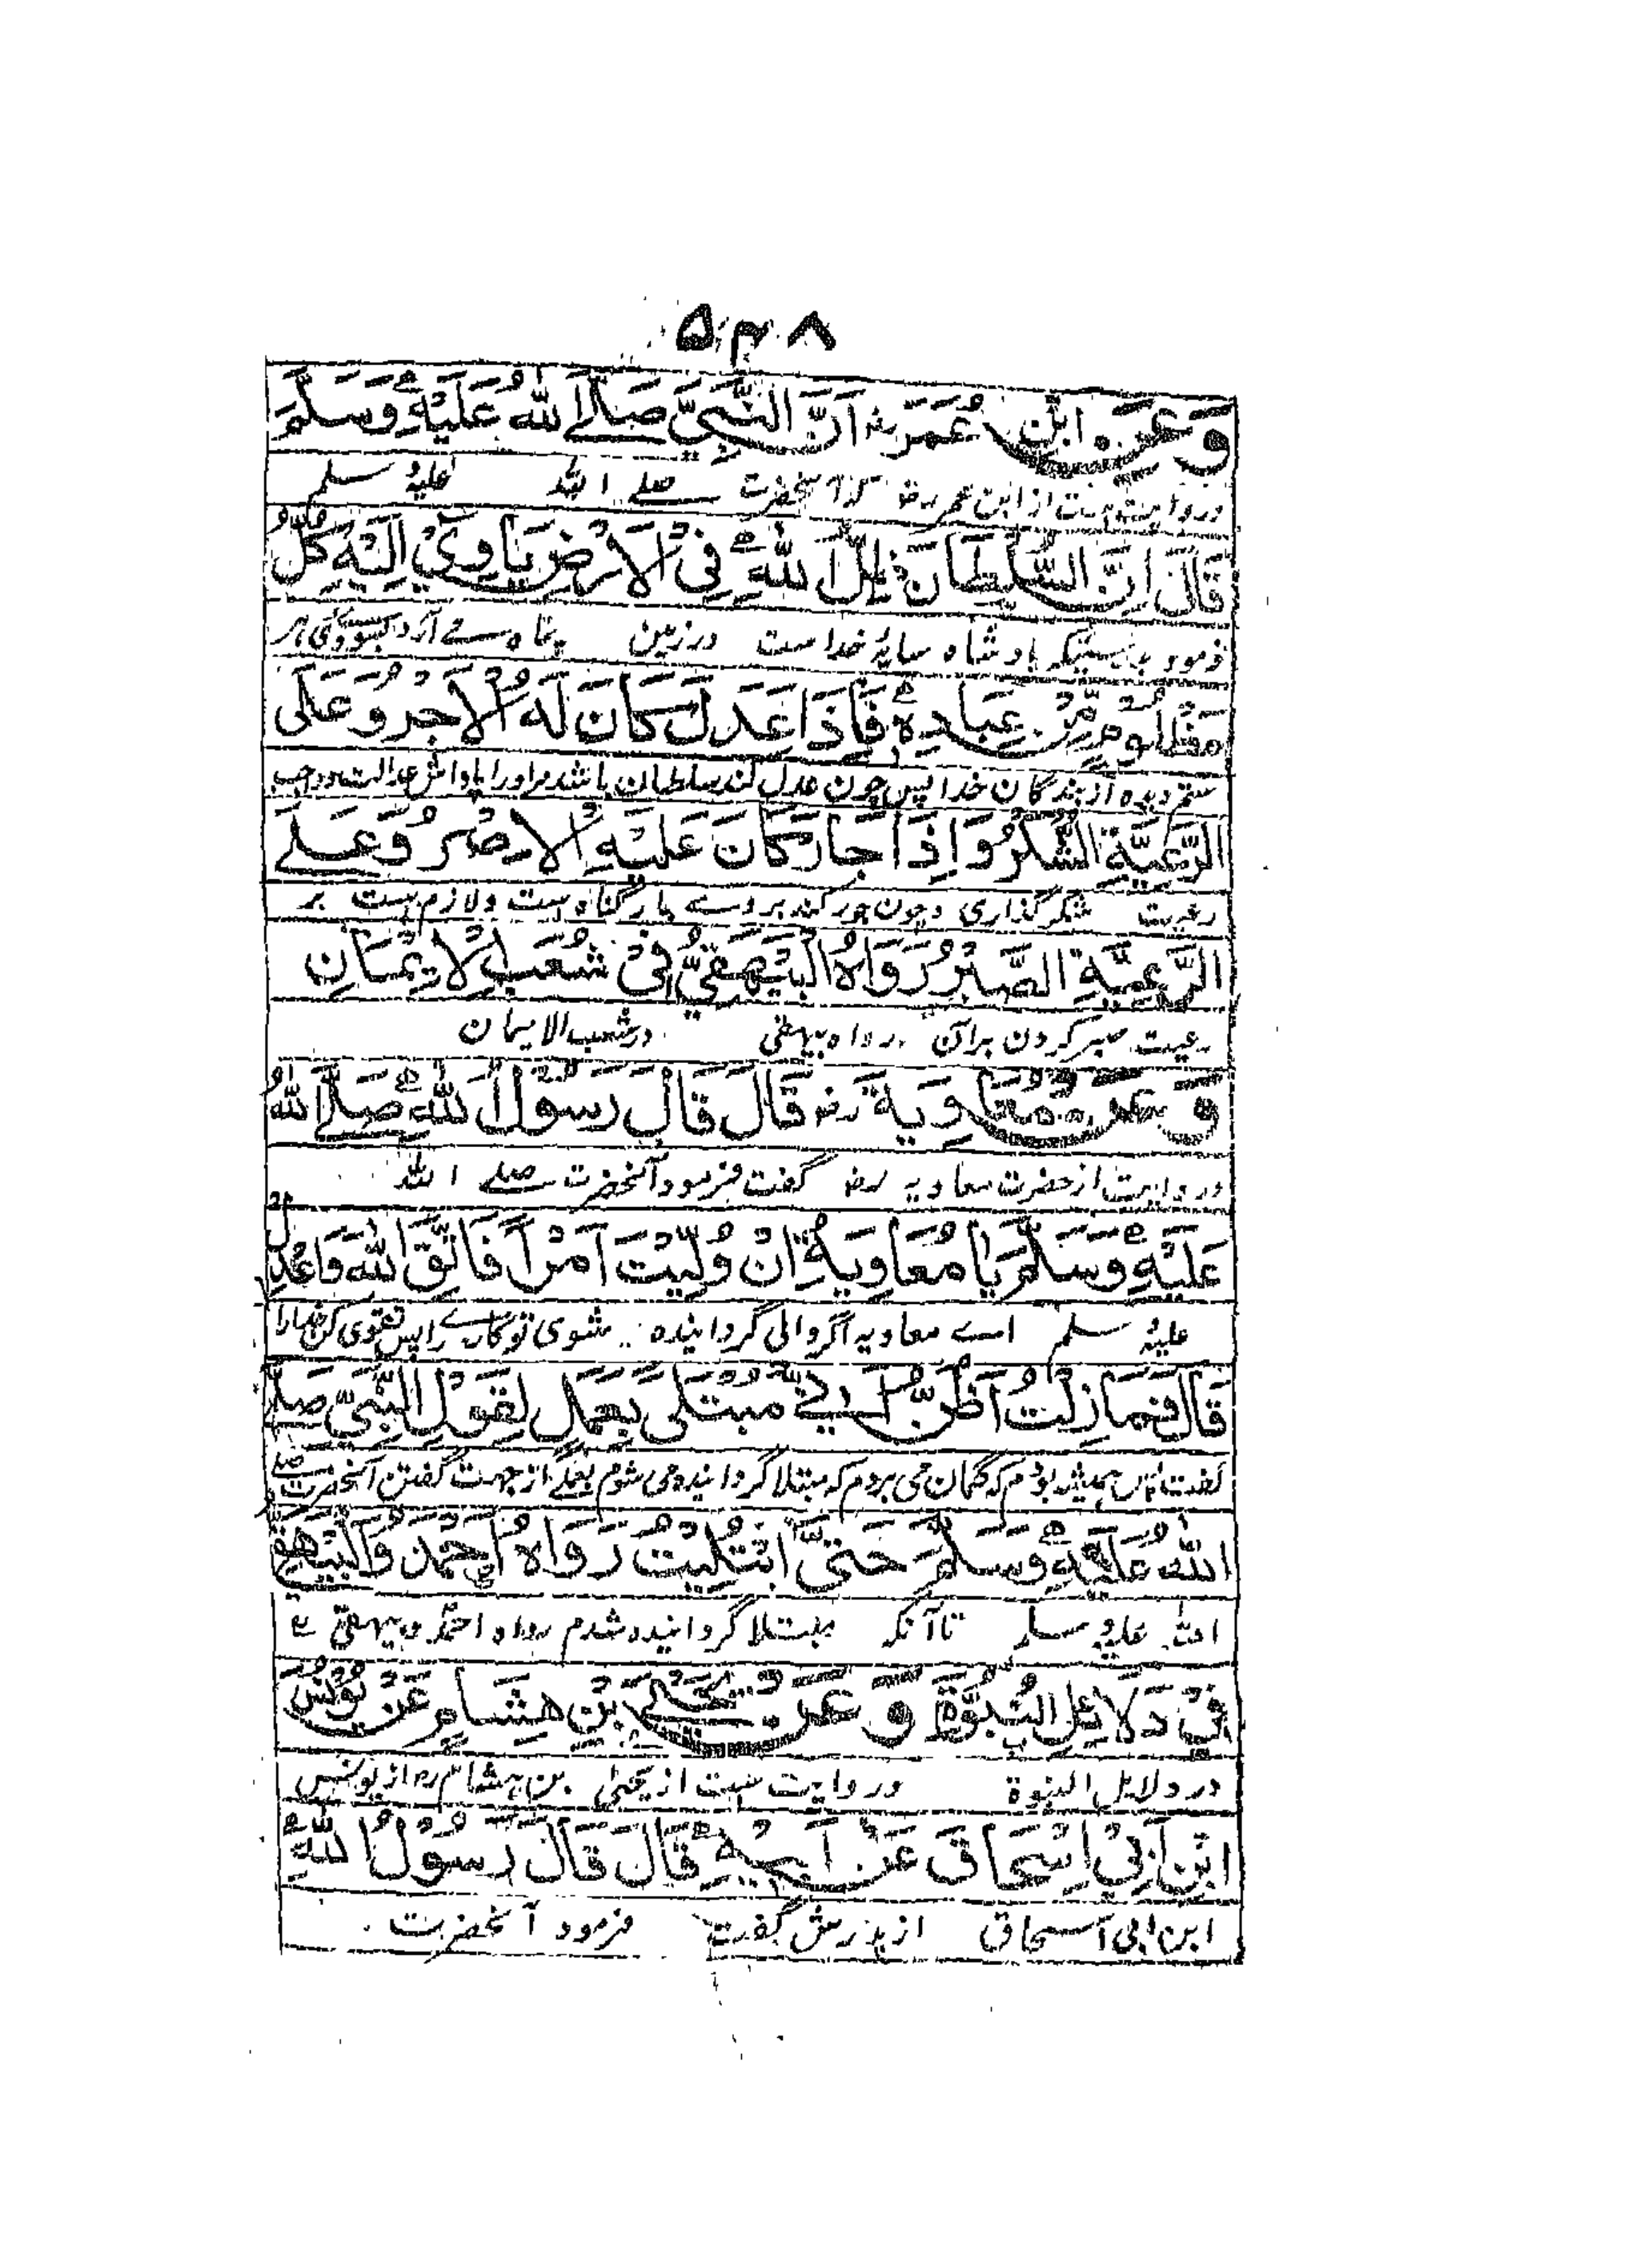 ۵۳۸
وَعَنِ ابْنِ عُمَرَ رض اَنَّ النَّبِيَّ صَلَّى اللهُ عَلَيْهِ وَسَلَّمَ
وروایت هست از ابن عمر رض که آنحضرت صلے اللہ علیہ وسلم
قَالَ اِنَّ السُّلْطَانَ ظِلُّ اللهِ فِي الْاَرْضِ يَاوِيْ اِلَيْهِ كُلُّ
فرمود بدرستیکہ بادشاہ سایۂ خداست در زمین پناہ مے آرد بسوی وی ہر
مَظْلُوْمٍ مِّنْ عِبَادِهٖ فَاِذَا عَدَلَ كَانَ لَهُ الْاَجْرُ وَعَلَى
ستم دیدہ از بندگان خدا پس چون عدل کند سلطان باشد مر اورا پاداش عدالت و واجب
الرَّعِيَّةِ الشُّكْرُ وَاِذَا جَارَ كَانَ عَلَيْهِ الْاِصْرُ وَعَلَى
رعیت شکر گذاری و چون جور کند بر وے بار گناہ است و لازم است بر
الرَّعِيَّةِ الصَّبْرُ رَوَاهُ الْبَيْهَقِيُّ فِيْ شُعَبِ الْاِيْمَانِ
رعیت صبر کردن بر آن رواہ بیہقی در شعب الایمان
وَعَنْ مُعَاوِيَةَ رض قَالَ قَالَ رَسُوْلُ اللهِ صَلَّى اللهُ
وروایت از حضرت معاویہ رض گفت فرمود آنحضرت صلے اللہ
عَلَيْهِ وَسَلَّمَ يَا مُعَاوِيَةُ اِنْ وُلِّيْتَ اَمْرًا فَاتَّقِ اللهَ وَاعْدِلْ
علیہ وسلم اے معاویہ اگر والی گردانیدہ شوی تو کارے را پس تقوی کن خدا را
قَالَ فَمَا زِلْتُ اَظُنُّ اَنِّيْ مُبْتَلًى بِعَمَلٍ لِقَوْلِ النَّبِيِّ صَلَّى
گفت پس ہمیشہ بودم کہ گمان می بردم کہ مبتلا گردانیدہ می شوم بعملے از جہت گفتن آنحضرت صلے
اللهُ عَلَيْهِ وَسَلَّمَ حَتَّى ابْتُلِيْتُ رَوَاهُ اَحْمَدُ وَالْبَيْهَقِيُّ
اللہ علیہ وسلم تا آنکہ مبتلا گردانیدہ شدم رواہ احمد و بیہقی
فِيْ دَلَائِلِ النُّبُوَّةِ وَعَنْ يَحْيَى بْنِ هِشَامٍ عَنْ يُوْنُسَ
در دلایل النبوة وروایت ہست از یحیٰی بن ہشام رہ از یونس
ابْنِ اَبِيْ اِسْحَاقَ عَنْ اَبِيْهِ قَالَ قَالَ رَسُوْلُ اللهِ
ابن ابی اسحاق از پدرش گفت فرمود آنحضرت